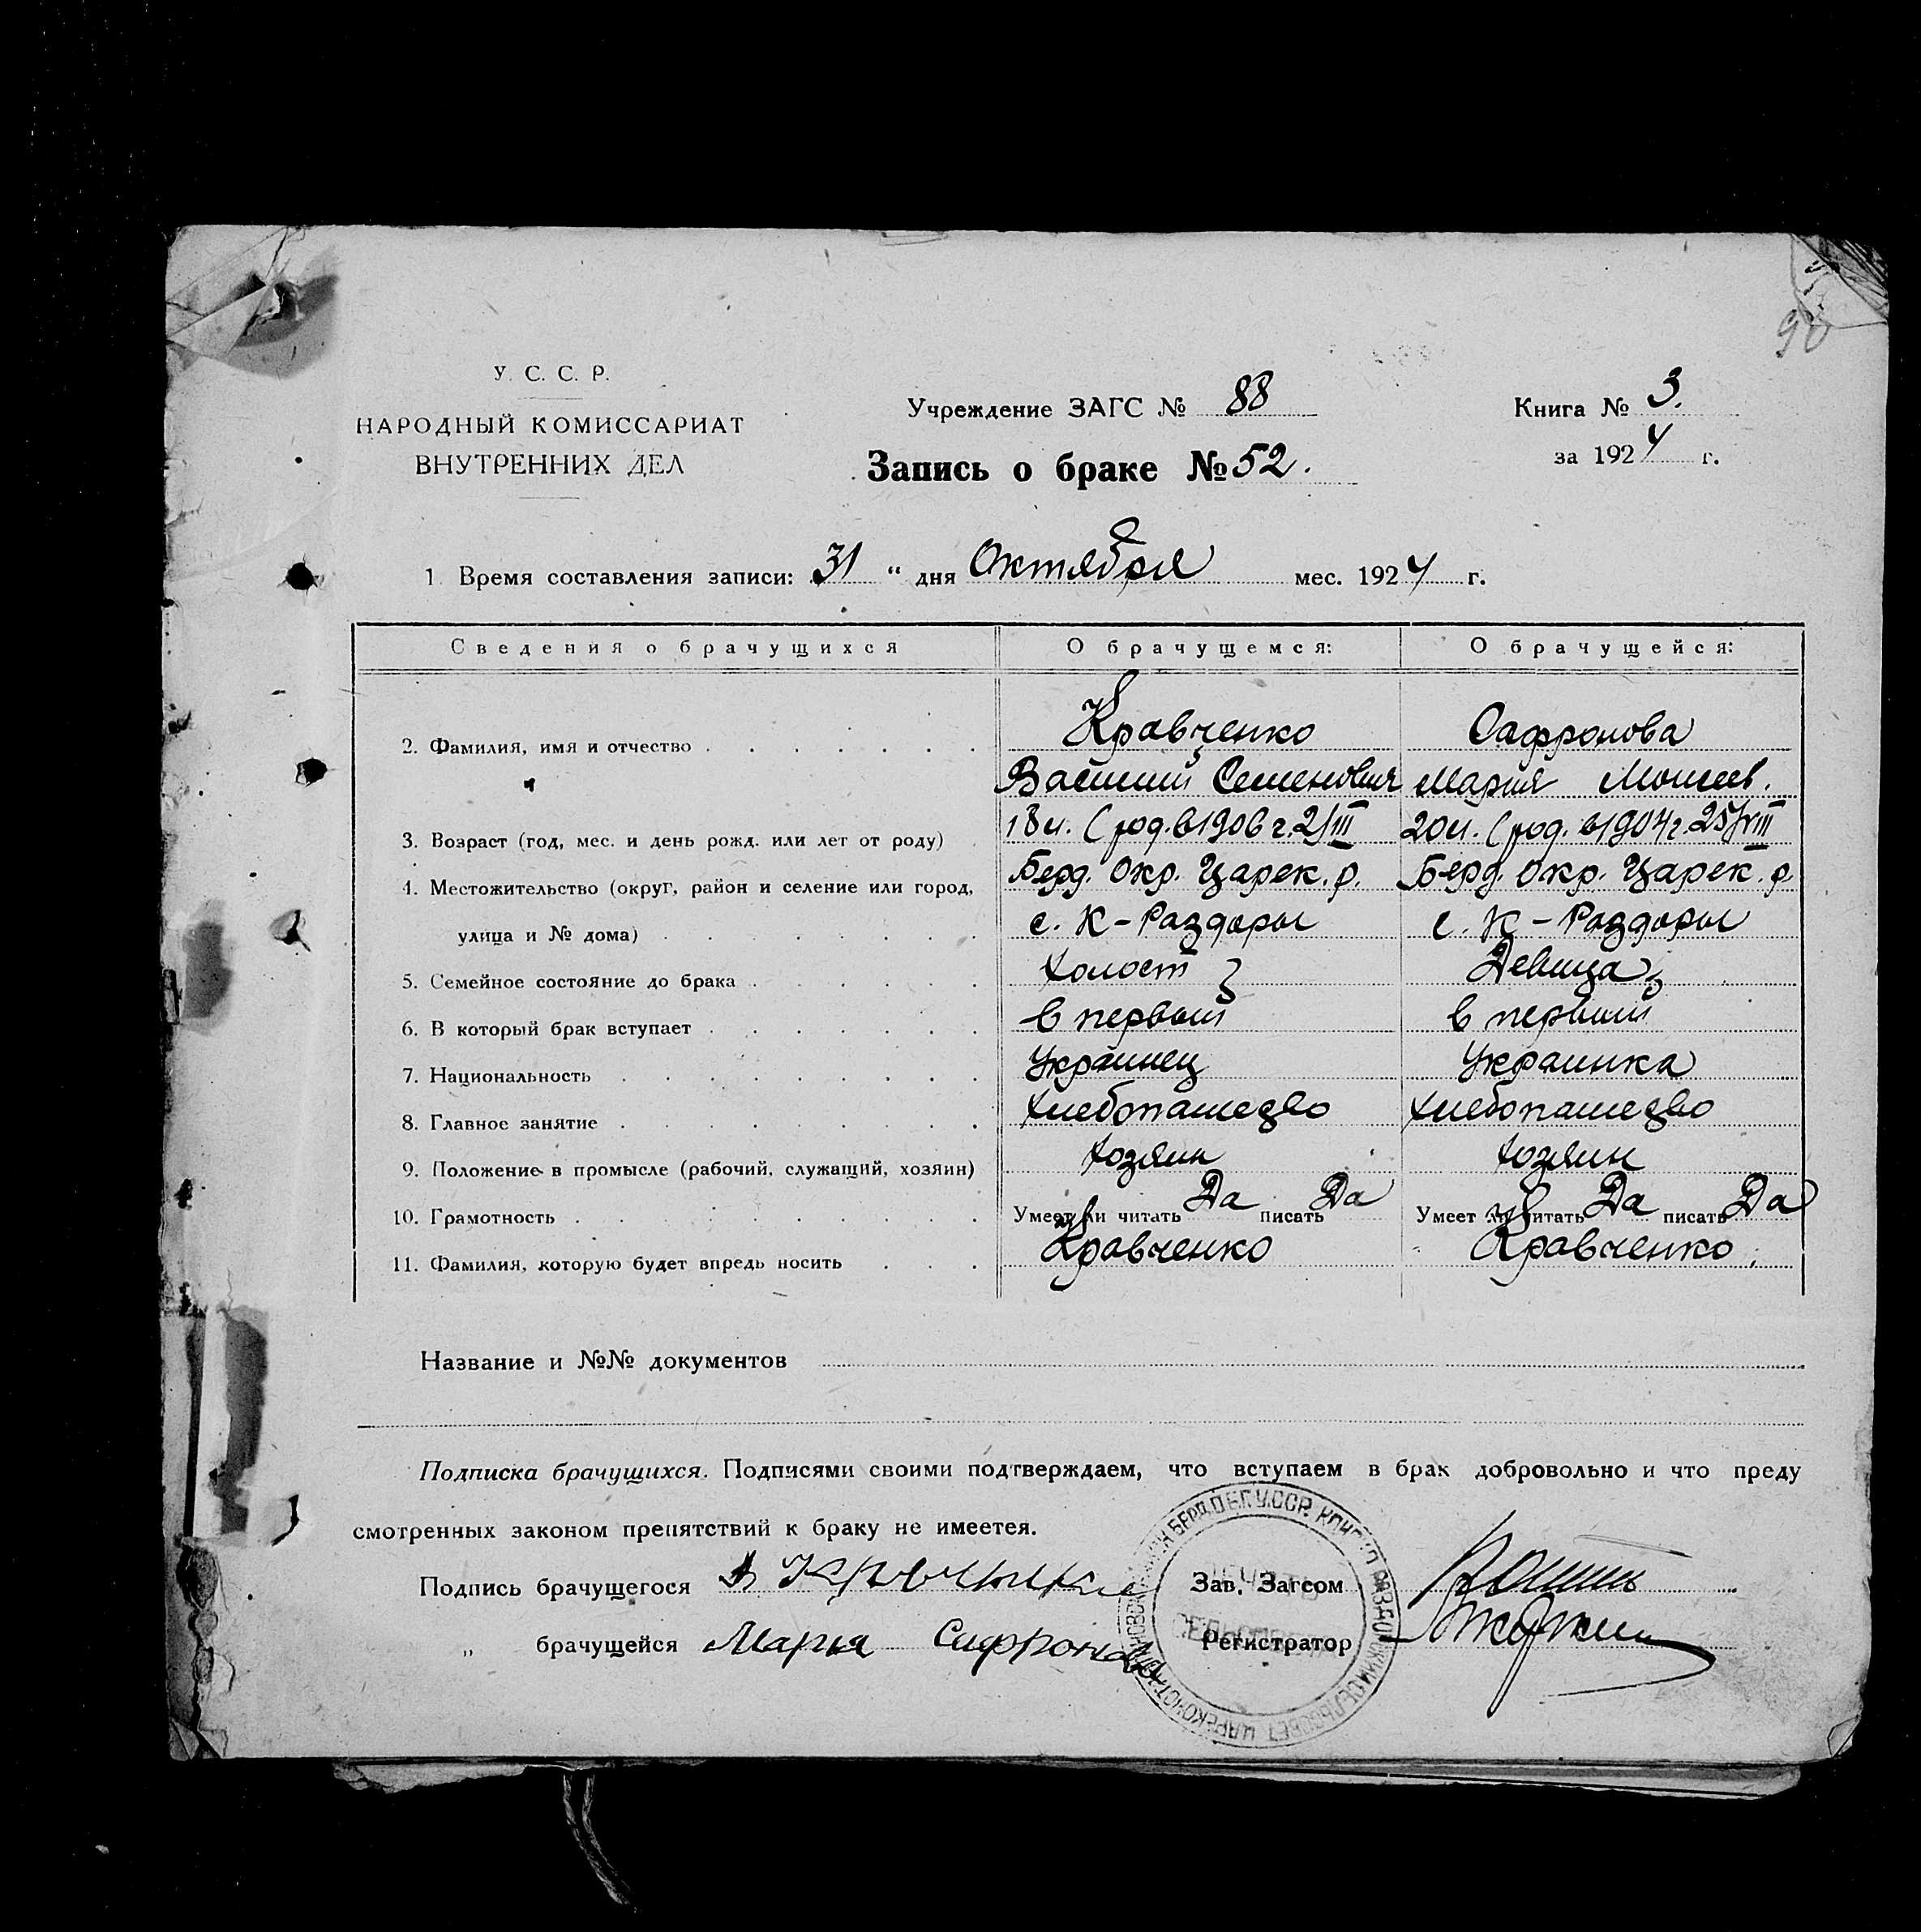 90
У. С. С. Р.
НАРОДНЫЙ КОМИССАРИАТ
ВНУТРЕННИХ ДЕЛ
Учреждение ЗАГС № 88
Запись о браке № 52.
Книга № 3.
за 1924 г.
1 Время составления записи: 31 " дня Октября мес. 1924 г.
Сведения о брачущихся О брачущемся: О брачущейся:
2. Фамилия, имя и отчество Кравченко Сафронова
Василий Семенович Мария Моисеев.
3. Возраст (год, мес. и день рожд. или лет от роду) 18 л. (род. в 1906 г. 2/III 20 л. (род. в 1904 г. 25/VIII
4. Местожительство (округ, район и селение или город, Берд. Окр. Царек. р. Берд. Окр. Царек. р.
улица и № дома) с. К-Раздоры с. К-Раздоры
5. Семейное состояние до брака Холост Девица
6. В который брак вступает в первый в первый
7. Национальность Украинец Украинка
8. Главное занятие Хлебопашедво Хлебопашедво
9. Положение в промысле (рабочий, служащий, хозяин) Хозяин Хозяин
10. Грамотность Умеет ли читать Да писать Да Умеет ли читать Да писать Да
11. Фамилия, которую будет впредь носить Кравченко Кравченко
Название и №№ документов
Подписка брачущихся. Подписями своими подтверждаем, что вступаем в брак добровольно и что преду
смотренных законом препятствий к браку не имеетея.
Подпись брачущегося Зав. Загсом
„ брачущейся Марья Сафронова Регистратор